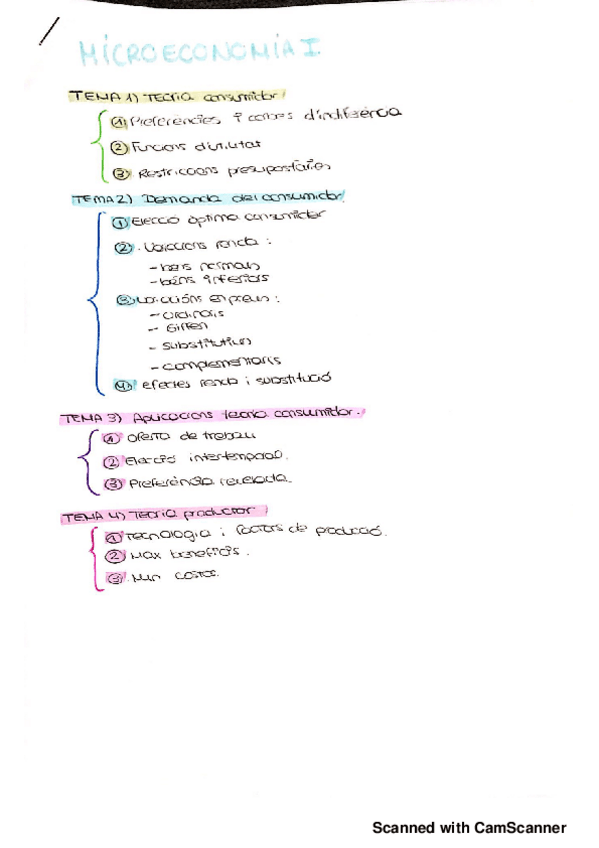 MICROECONOMÍA I
TEMA 1) Teoria consumidor
① Preferències i corbes d'indiferència
② Funcions d'utilitat
③ Restriccions pressupostàries
TEMA 2) Demanda del consumidor
① Elecció òptima consumidor
② Variacions renda :
- bens normals
- béns inferiors
③ Variacións en preus :
- ordinaris
- Giffen
- Substitutius
- complementaris
④ efectes renda i substitució
TEMA 3) Aplicacions teoria consumidor.
① Oferta de treball
② Elecció intertemporal.
③ Preferència revelada.
TEMA 4) Teoria productor
① Tecnologia i factors de producció.
② Max beneficis.
③ Min costos.
Scanned with CamScanner